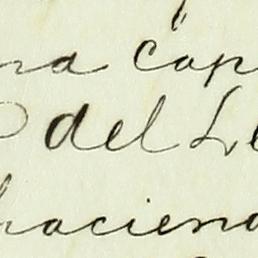 na cap
del Le
haciend